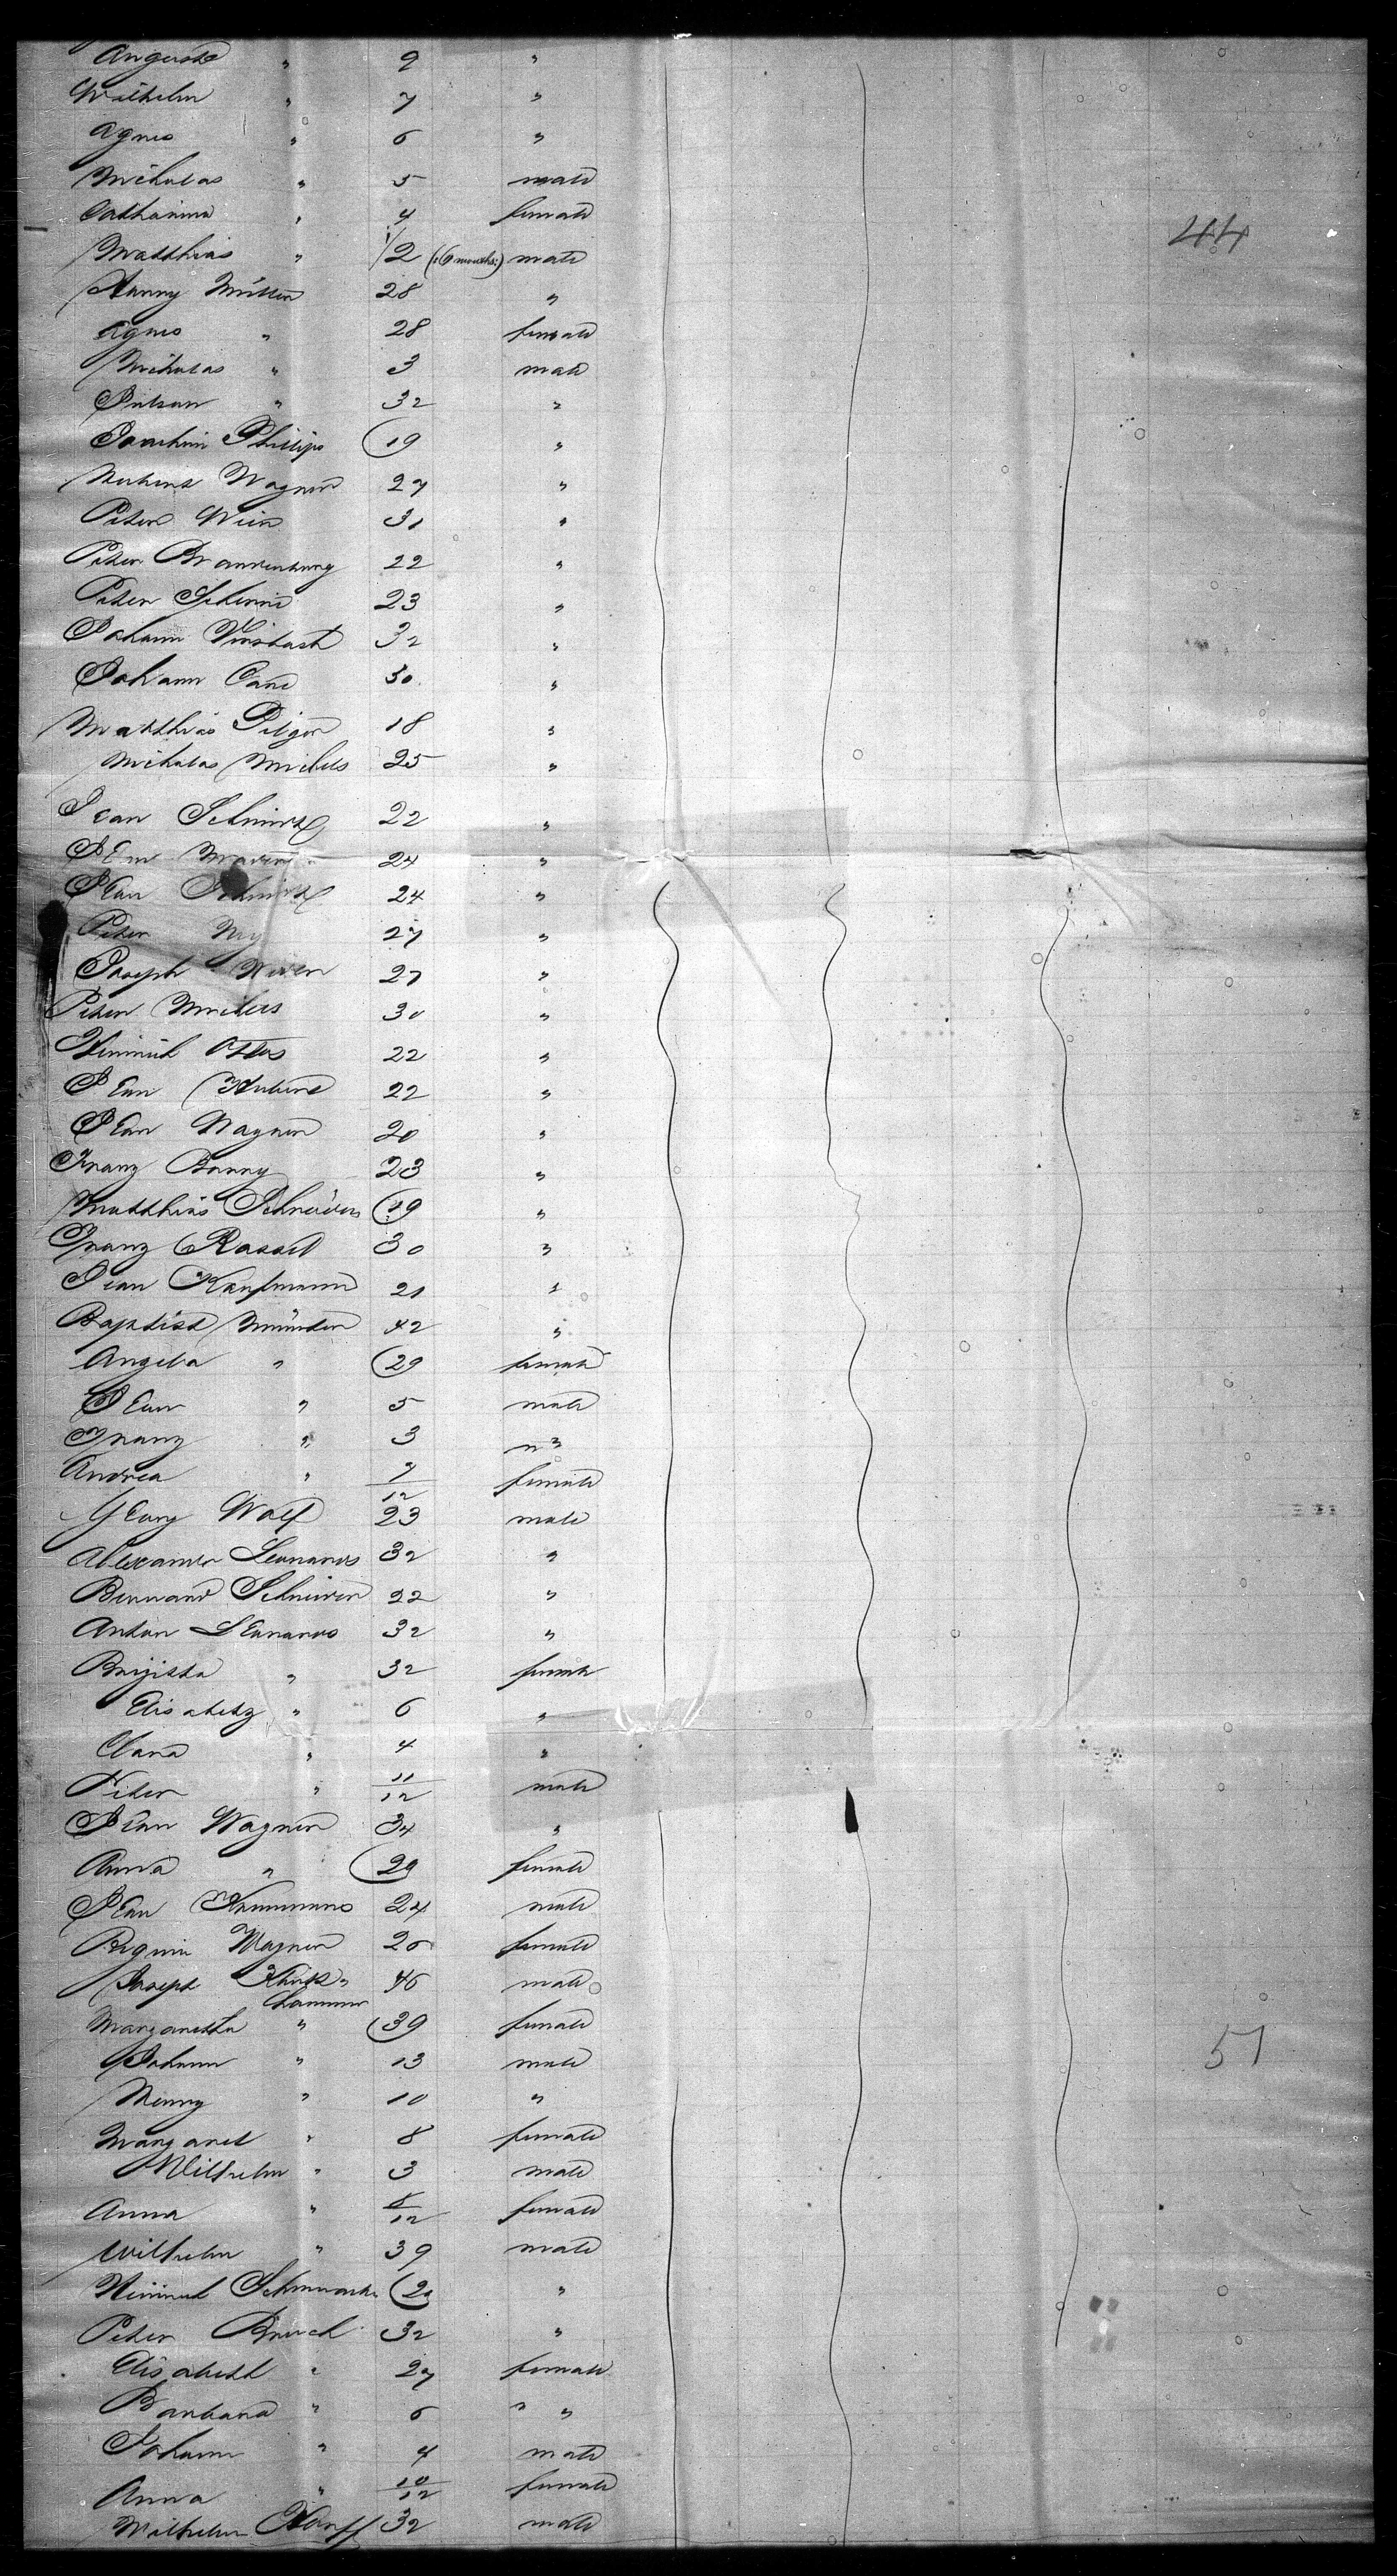 Auguste " 9 "
Wilhelm " 7 "
Agnes " 6 "
Nicholas " 5 male
Catharina " 4 female
Matthias " 1/2 (:6 months:) male
Henry Müller 28 "
Agnes " 28 female
Nicholas " 3 male
" 32 "
Joachim Phillips 19 "
Hubert Wagner 27 "
Peter 31 "
Peter Brandenburg 22 "
Peter 23 "
Johann 32 "
Johann 30 "
Matthias Pilger 18 "
Nicholas Michels 25 "
Jean Schmitz 22 "
Jean 24 "
Jean Schmitz 24 "
Peter 27 "
Joseph 27 "
Peter Michels 30 "
Heinrich Ottes 22 "
Jean Hubert 22 "
Jean Wagner 20 "
Franz 23 "
Matthias Schneider 19 "
Franz Rassel 30 "
Jean Kaufmann 21 "
Baptist Münster 42 "
Angela " 29 female
Jean " 5 male
Franz " 3 "
Andrea " 7/12 female
Georg Wolf 23 male
Alexander Leonards 32 "
Bernard Schneider 22 "
Anton Leonards 32 "
Brigitta " 32 female
Elisabeth " 6 "
Clara " 4 "
Peter " 11/12 male
Jean Wagner 34 "
Anna " 29 female
Jean 24 male
Regina Wagner female
Joseph 46 male
44
Margaretha " 39 female
Johann " 13 male
Henry " 10 "
51
Margaret " 8 female
Wilhelm " 3 male
Anna " female
Wilhelm " 39 male
Heinrich "
Peter Bruch 32 "
Elisabeth " 27 female
Barbara " 6 " "
Johann " 4 male
Anna " 10/12 female
Wilhelm 32 male